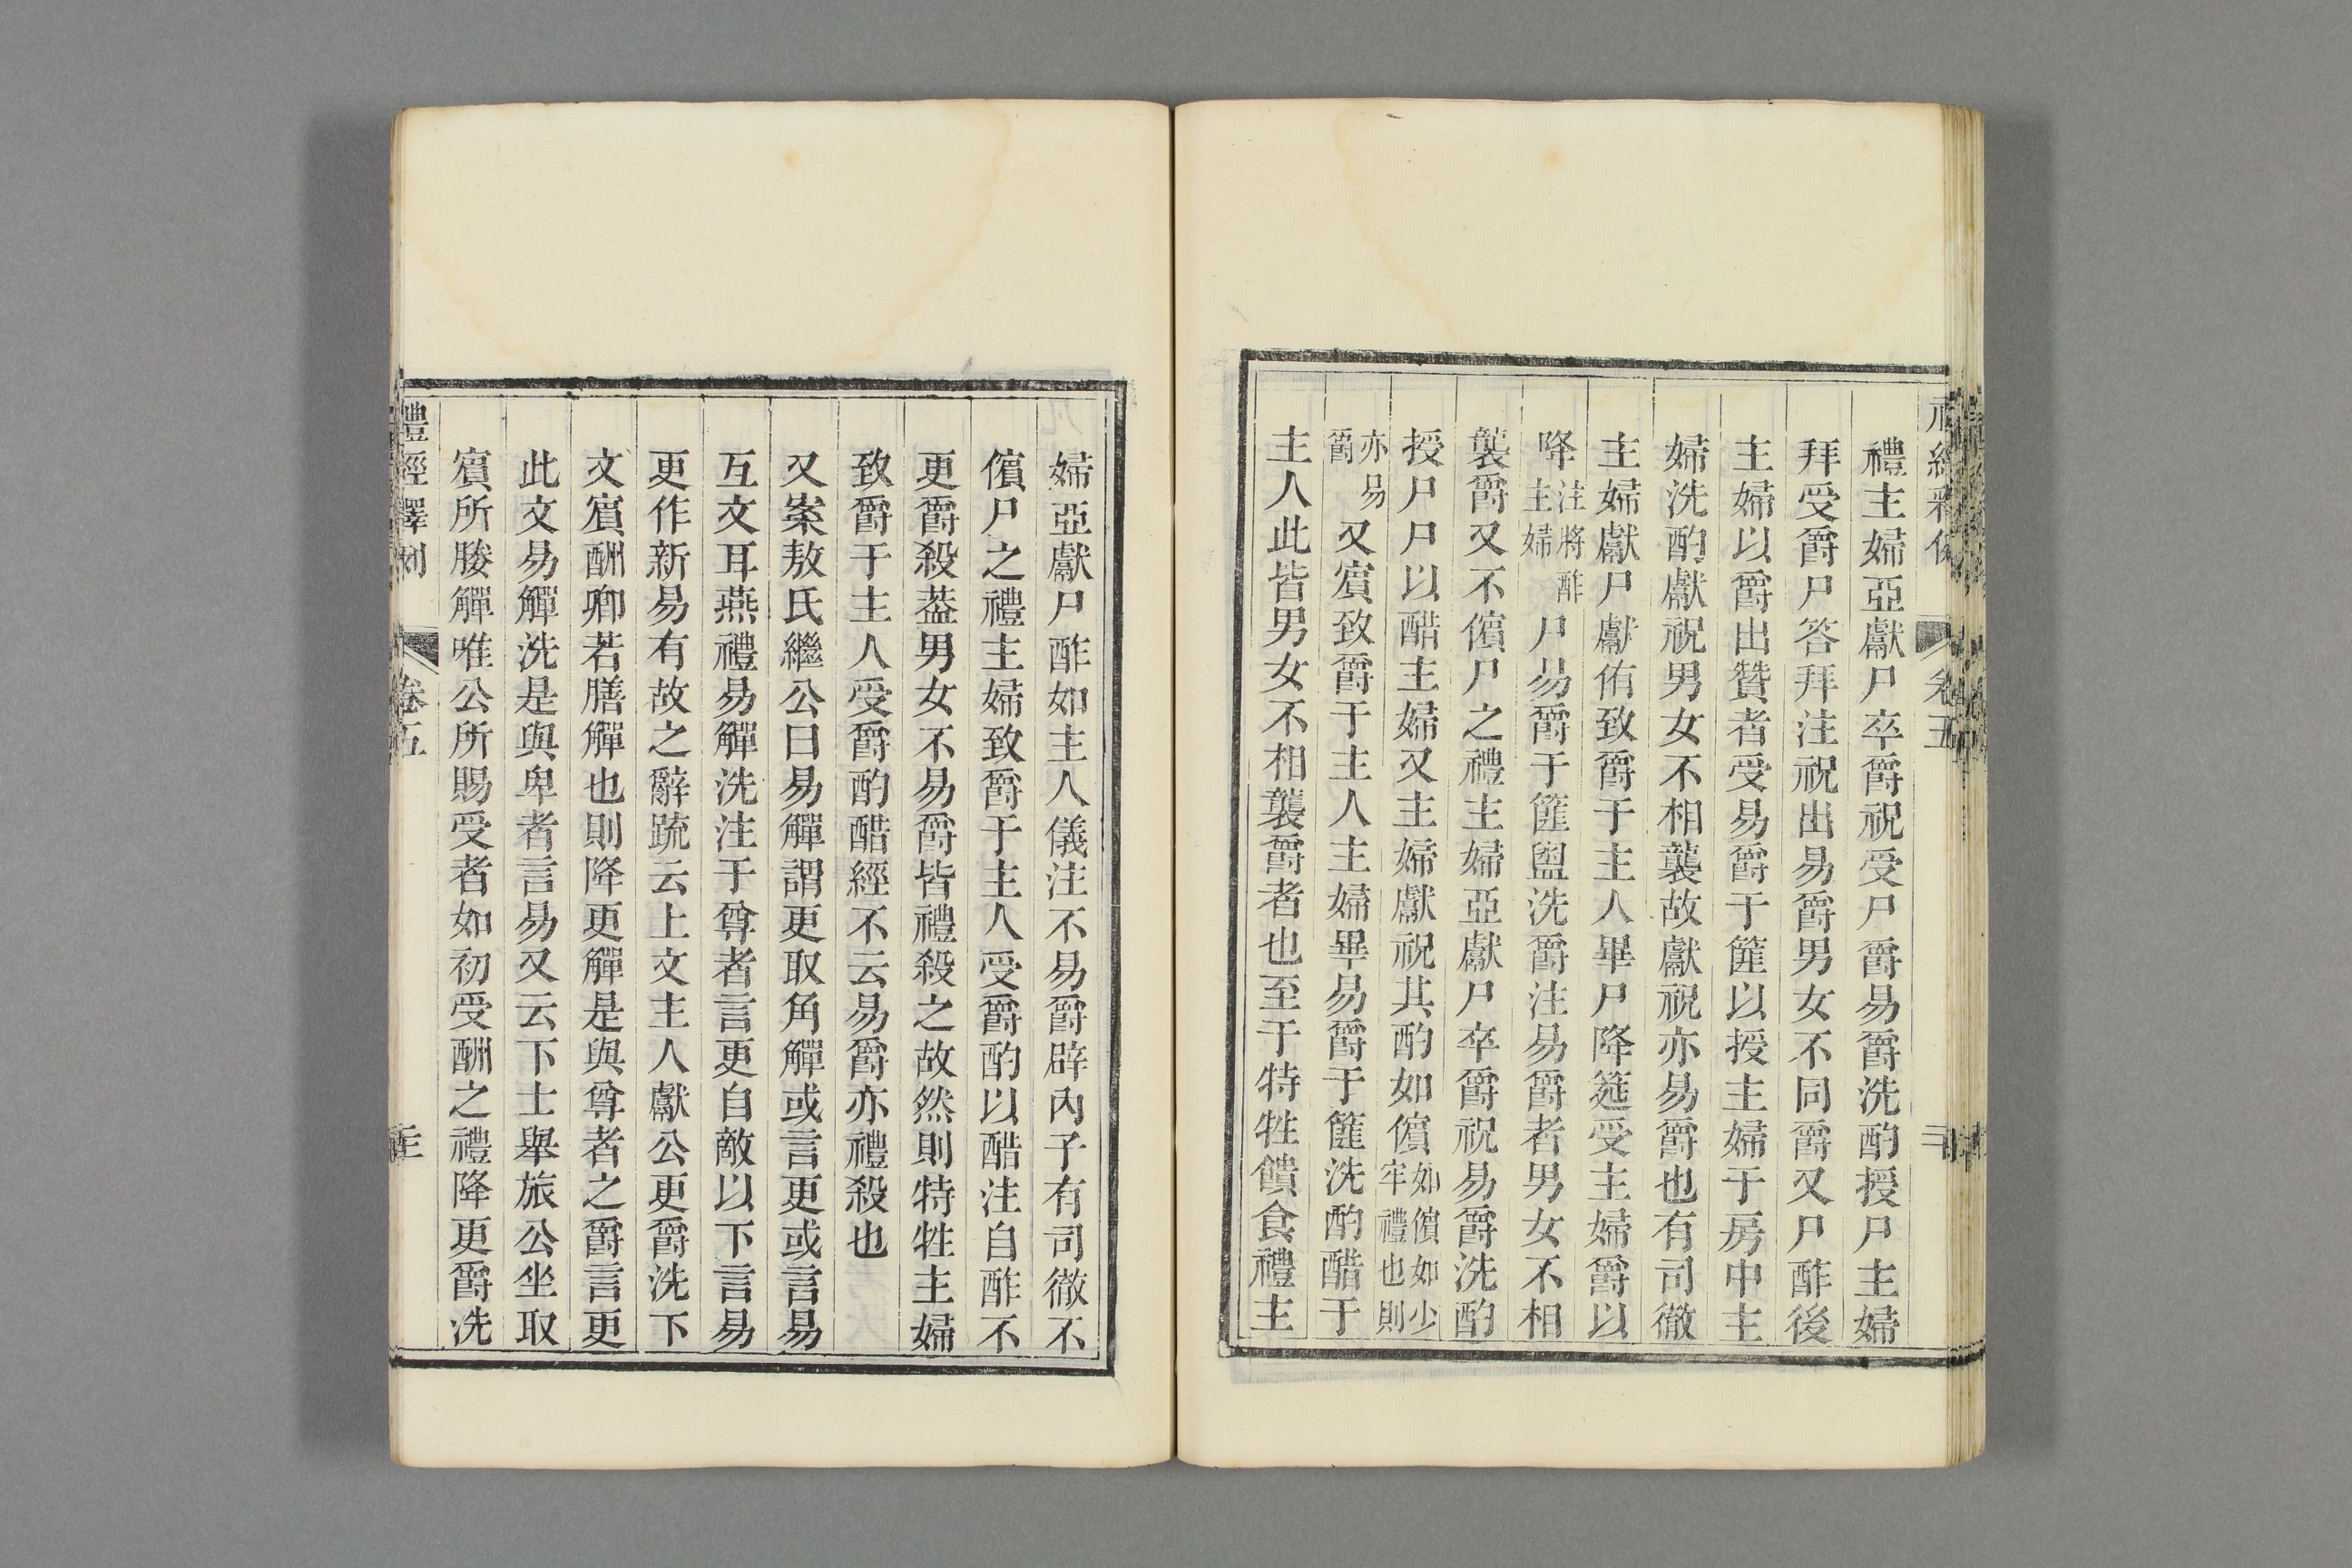 禮主婦亞獻尸卒爵祝受尸爵易爵洗酌授尸主婦
拜受爵尸答拜注祝出易爵男女不同爵又尸酢後
主婦以爵出贊者受易爵于篚以授主婦于房中主
婦洗酌獻祝男女不相襲故獻祝亦易爵也有司徹
主婦獻尸獻侑致爵于主人畢尸降筵受主婦爵以
降注將酢主婦尸易爵于篚盥洗爵注易爵者男女不相
襲爵又不儐尸之禮主婦亞獻尸卒爵祝易爵洗酌
授尸尸以醋主婦又主婦獻祝其酌如儐如儐如少牢禮也則
亦易爵又賓致爵于主人主婦畢易爵于篚洗酌醋于
主人此皆男女不相襲爵者也至于特牲饋食禮主
婦亞獻尸酢如主人儀注不易爵辟內子有司徹不
儐尸之禮主婦致爵于主人受爵酌以醋注自酢不
更爵殺葢男女不易爵皆禮殺之故然則特牲主婦
致爵于主人受爵酌醋經不云易爵亦禮殺也
又案敖氏繼公曰易觶謂更取角觶或言更或言易
互文耳燕禮易觶洗注于尊者言更自敵以下言易
更作新易有故之辭疏云上文主人獻公更爵洗下
文賓酬卿若膳觶也則降更觶是與尊者之爵言更
此文易觶洗是與卑者言易又云下士舉旅公坐取
賓所媵觶唯公所賜受者如初受酬之禮降更爵洗
禮經釋例
卷五